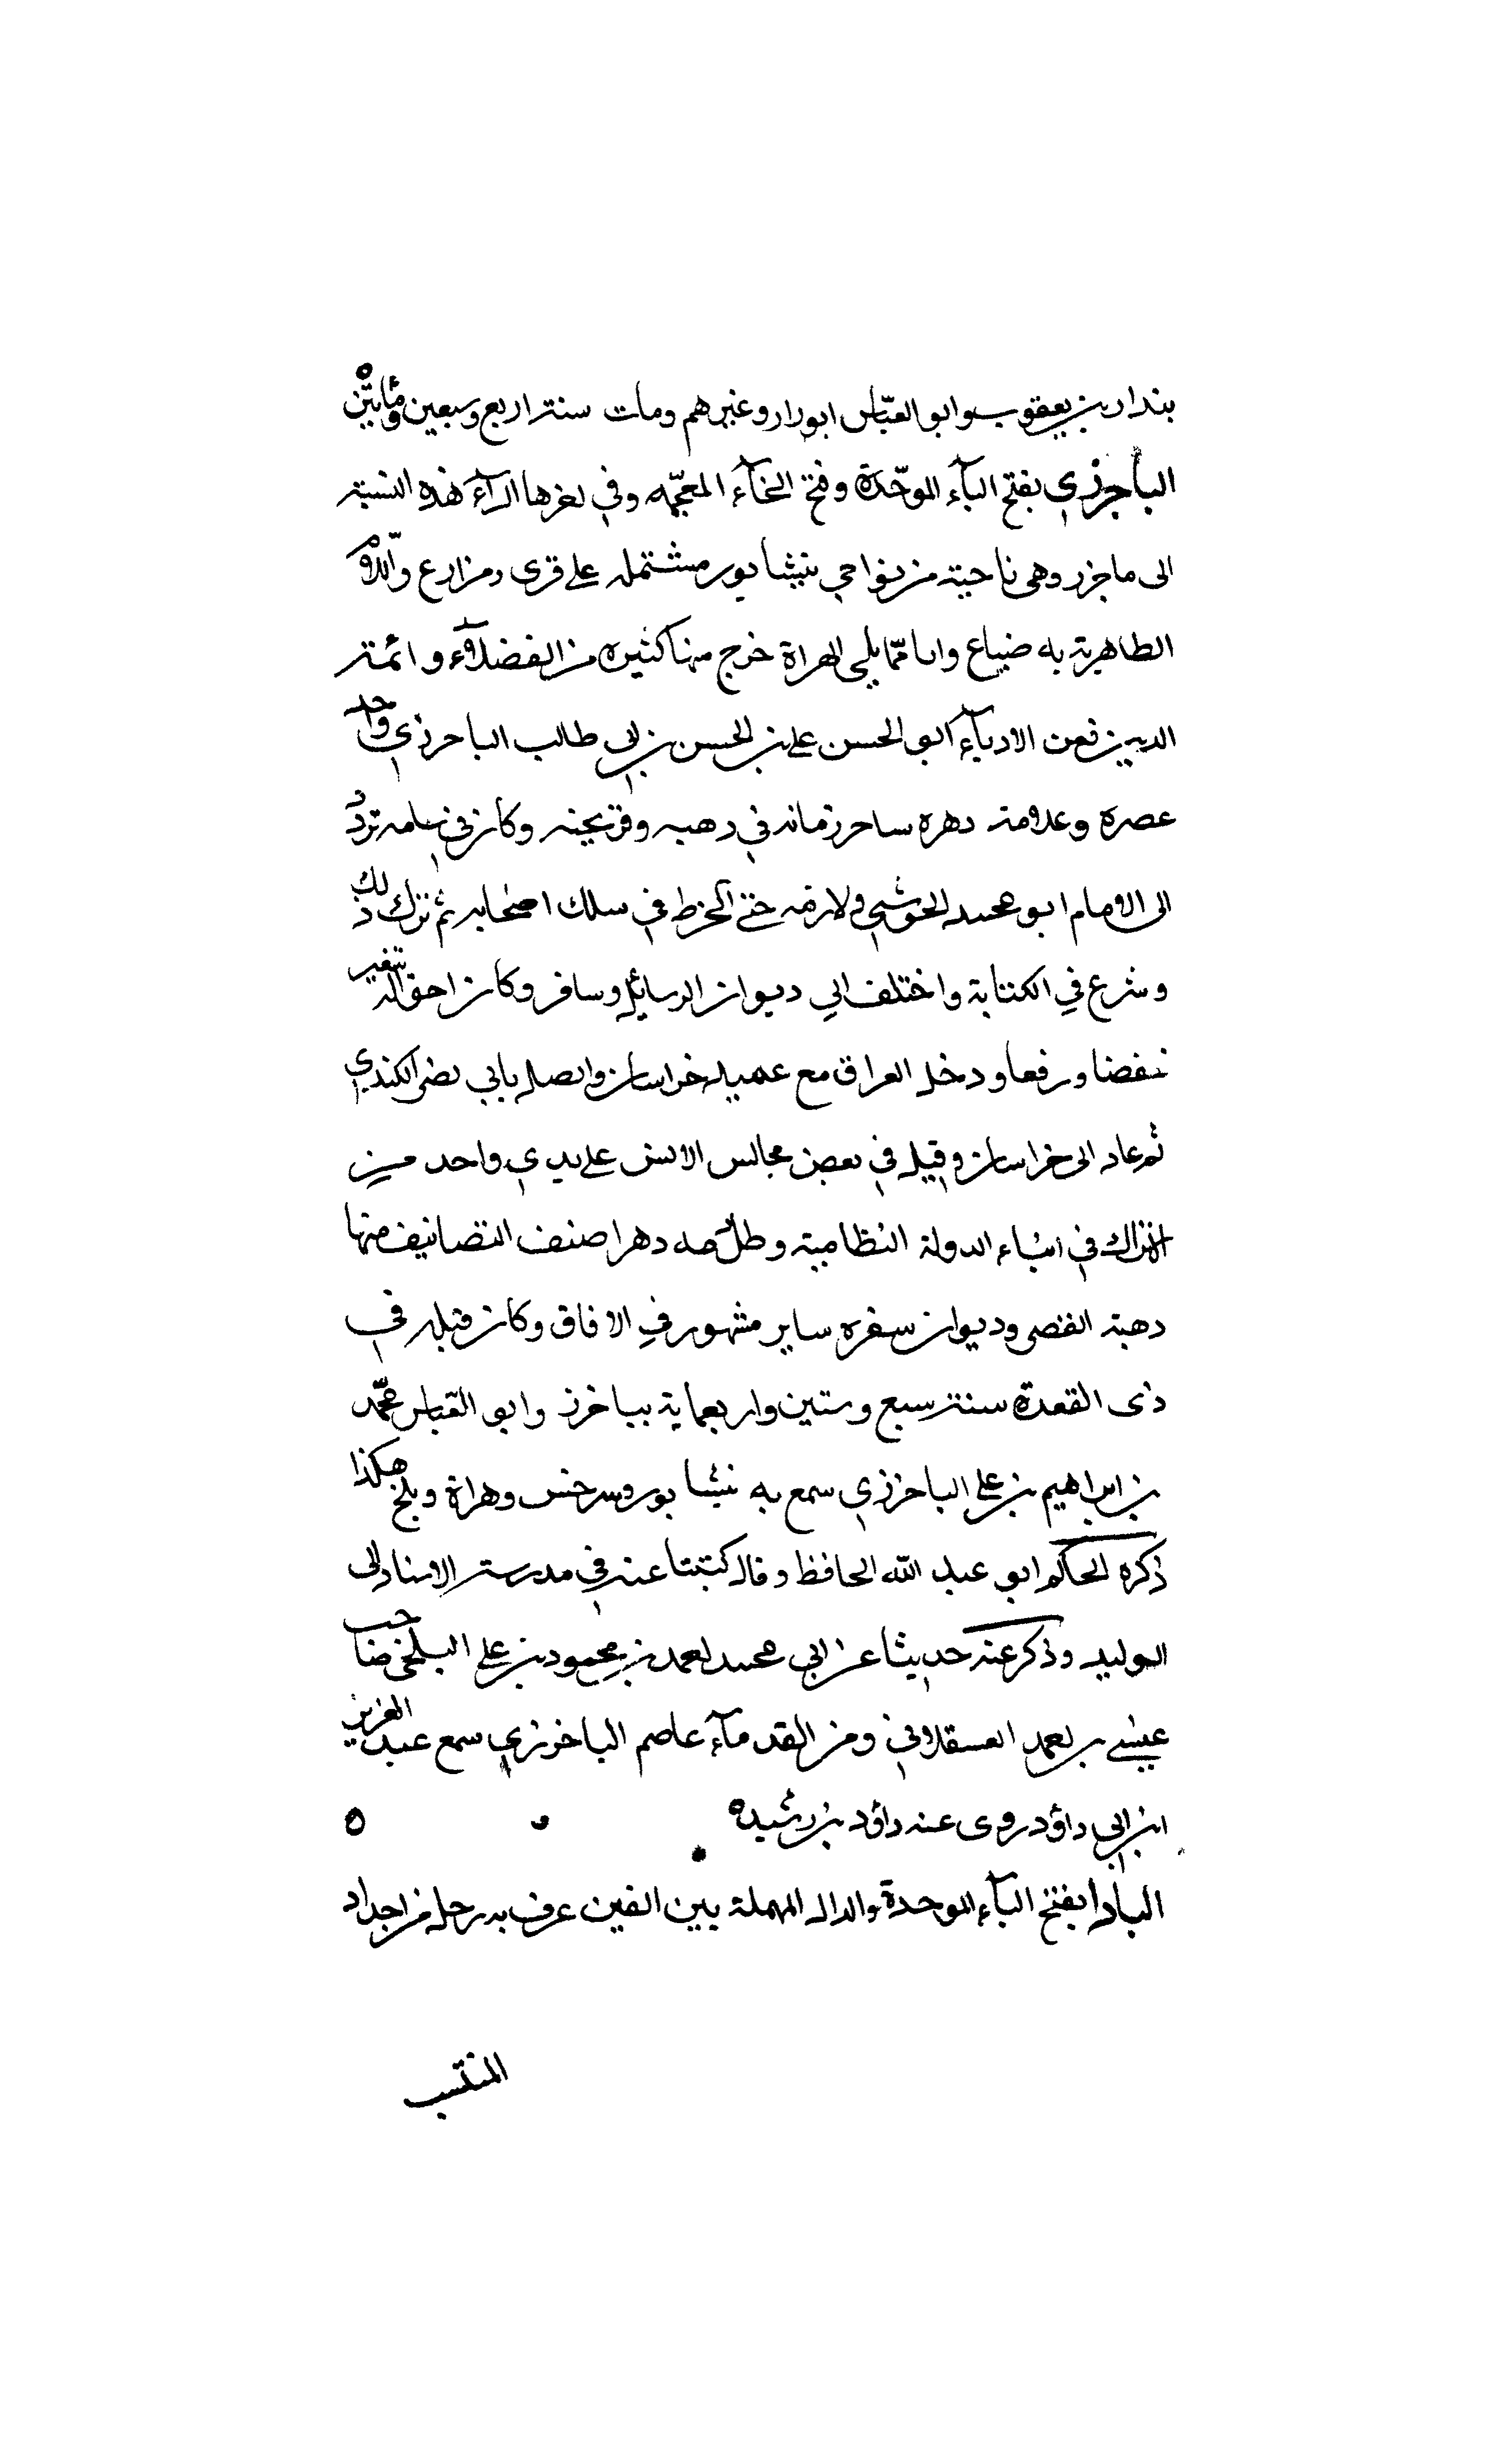 بندار بن يعقوب وابو العبّاس ابوزار وغيرهم ومات سنة اربع وسبعين ومايتين ه
الباخرزي بفتح الباء الموحّدة وفتح الخاء المعجمه وفي اخرها الراء هذه النسبة
الى باخرز وهي ناحية من نواحي نيشابور مشتمله على قرى ومزارع
الطاهرية به ضياع مما يلي الهراة خرج منها كثيره من الفضلاء وائمة
الدين فمن الادباء ابو الحسن على بن الحسن بن ابي طالب الباخرزي واحد
عصره وعلامة دهره ساحر زمانه في ذهنه وقريحته وكان في تردد
الى الامام ابو محمد ولازمه حتى انخرط في سلك اصحابه ثم ترك ذلك
وشرع في الكتابة واختلف الى ديوان الرسائل وسافر وكان احواله تتغير
خفضا ورفعا ودخل العراق مع عميد خراسان واتصل بابي نصر الكندي
ثم عاد الى خراسان وقتل في بعض مجالس الانس على يدي واحد من
الاتراك في اثناء الدولة النظامية وطلّ دمه هدرا صنف التصانيف منها
دمية القصر وديوان شعره ساير مشهور في الافاق وكان قتله في
ذى القعدة سنة سبع وستين واربعماية بباخرز وابو العباس محمّد
بن ابراهيم بن على الباخرزي سمع به نيشابور وسرخس وهراة وبلخ هكذا
ذكره الحاكم ابو عبد الله الحافظ وقال كتبنا عنه في مدرسة الاستاد ابى
الوليد وذكر عنه حديثا عن ابي محمد احمد بن محمود بن على البلخي صاحب
عيسى بن احمد العسقلاني ومن القدماء عاصم الباخرزي سمع عبد العزيز
ابن ابي داؤد روى عنه داؤد بن رشيد ه ه
البادا بفتح الباء الموحدة والدال المهملة بين الفين عرف به رجل من اجداد
المنتسب